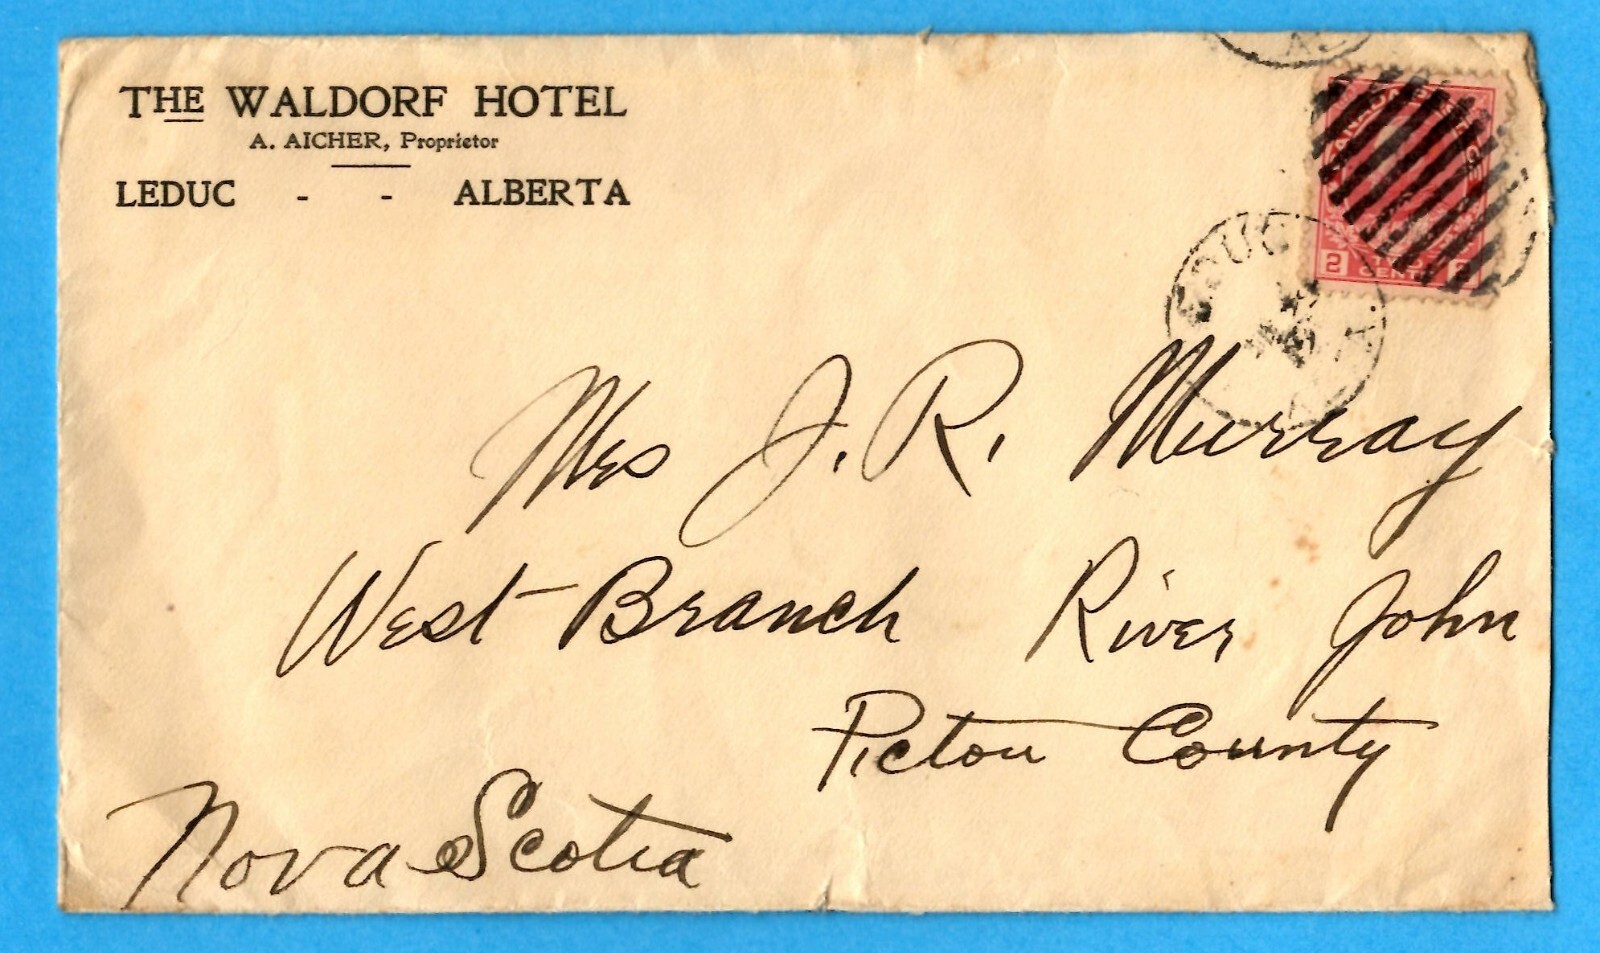 THE WALDORF HOTEL
A. AICHER, Proprietor
LEDUC - - ALBERTA
2 CENTS
Mrs J. R. Murray
West Branch River John
Pictou County
Nova Scotia